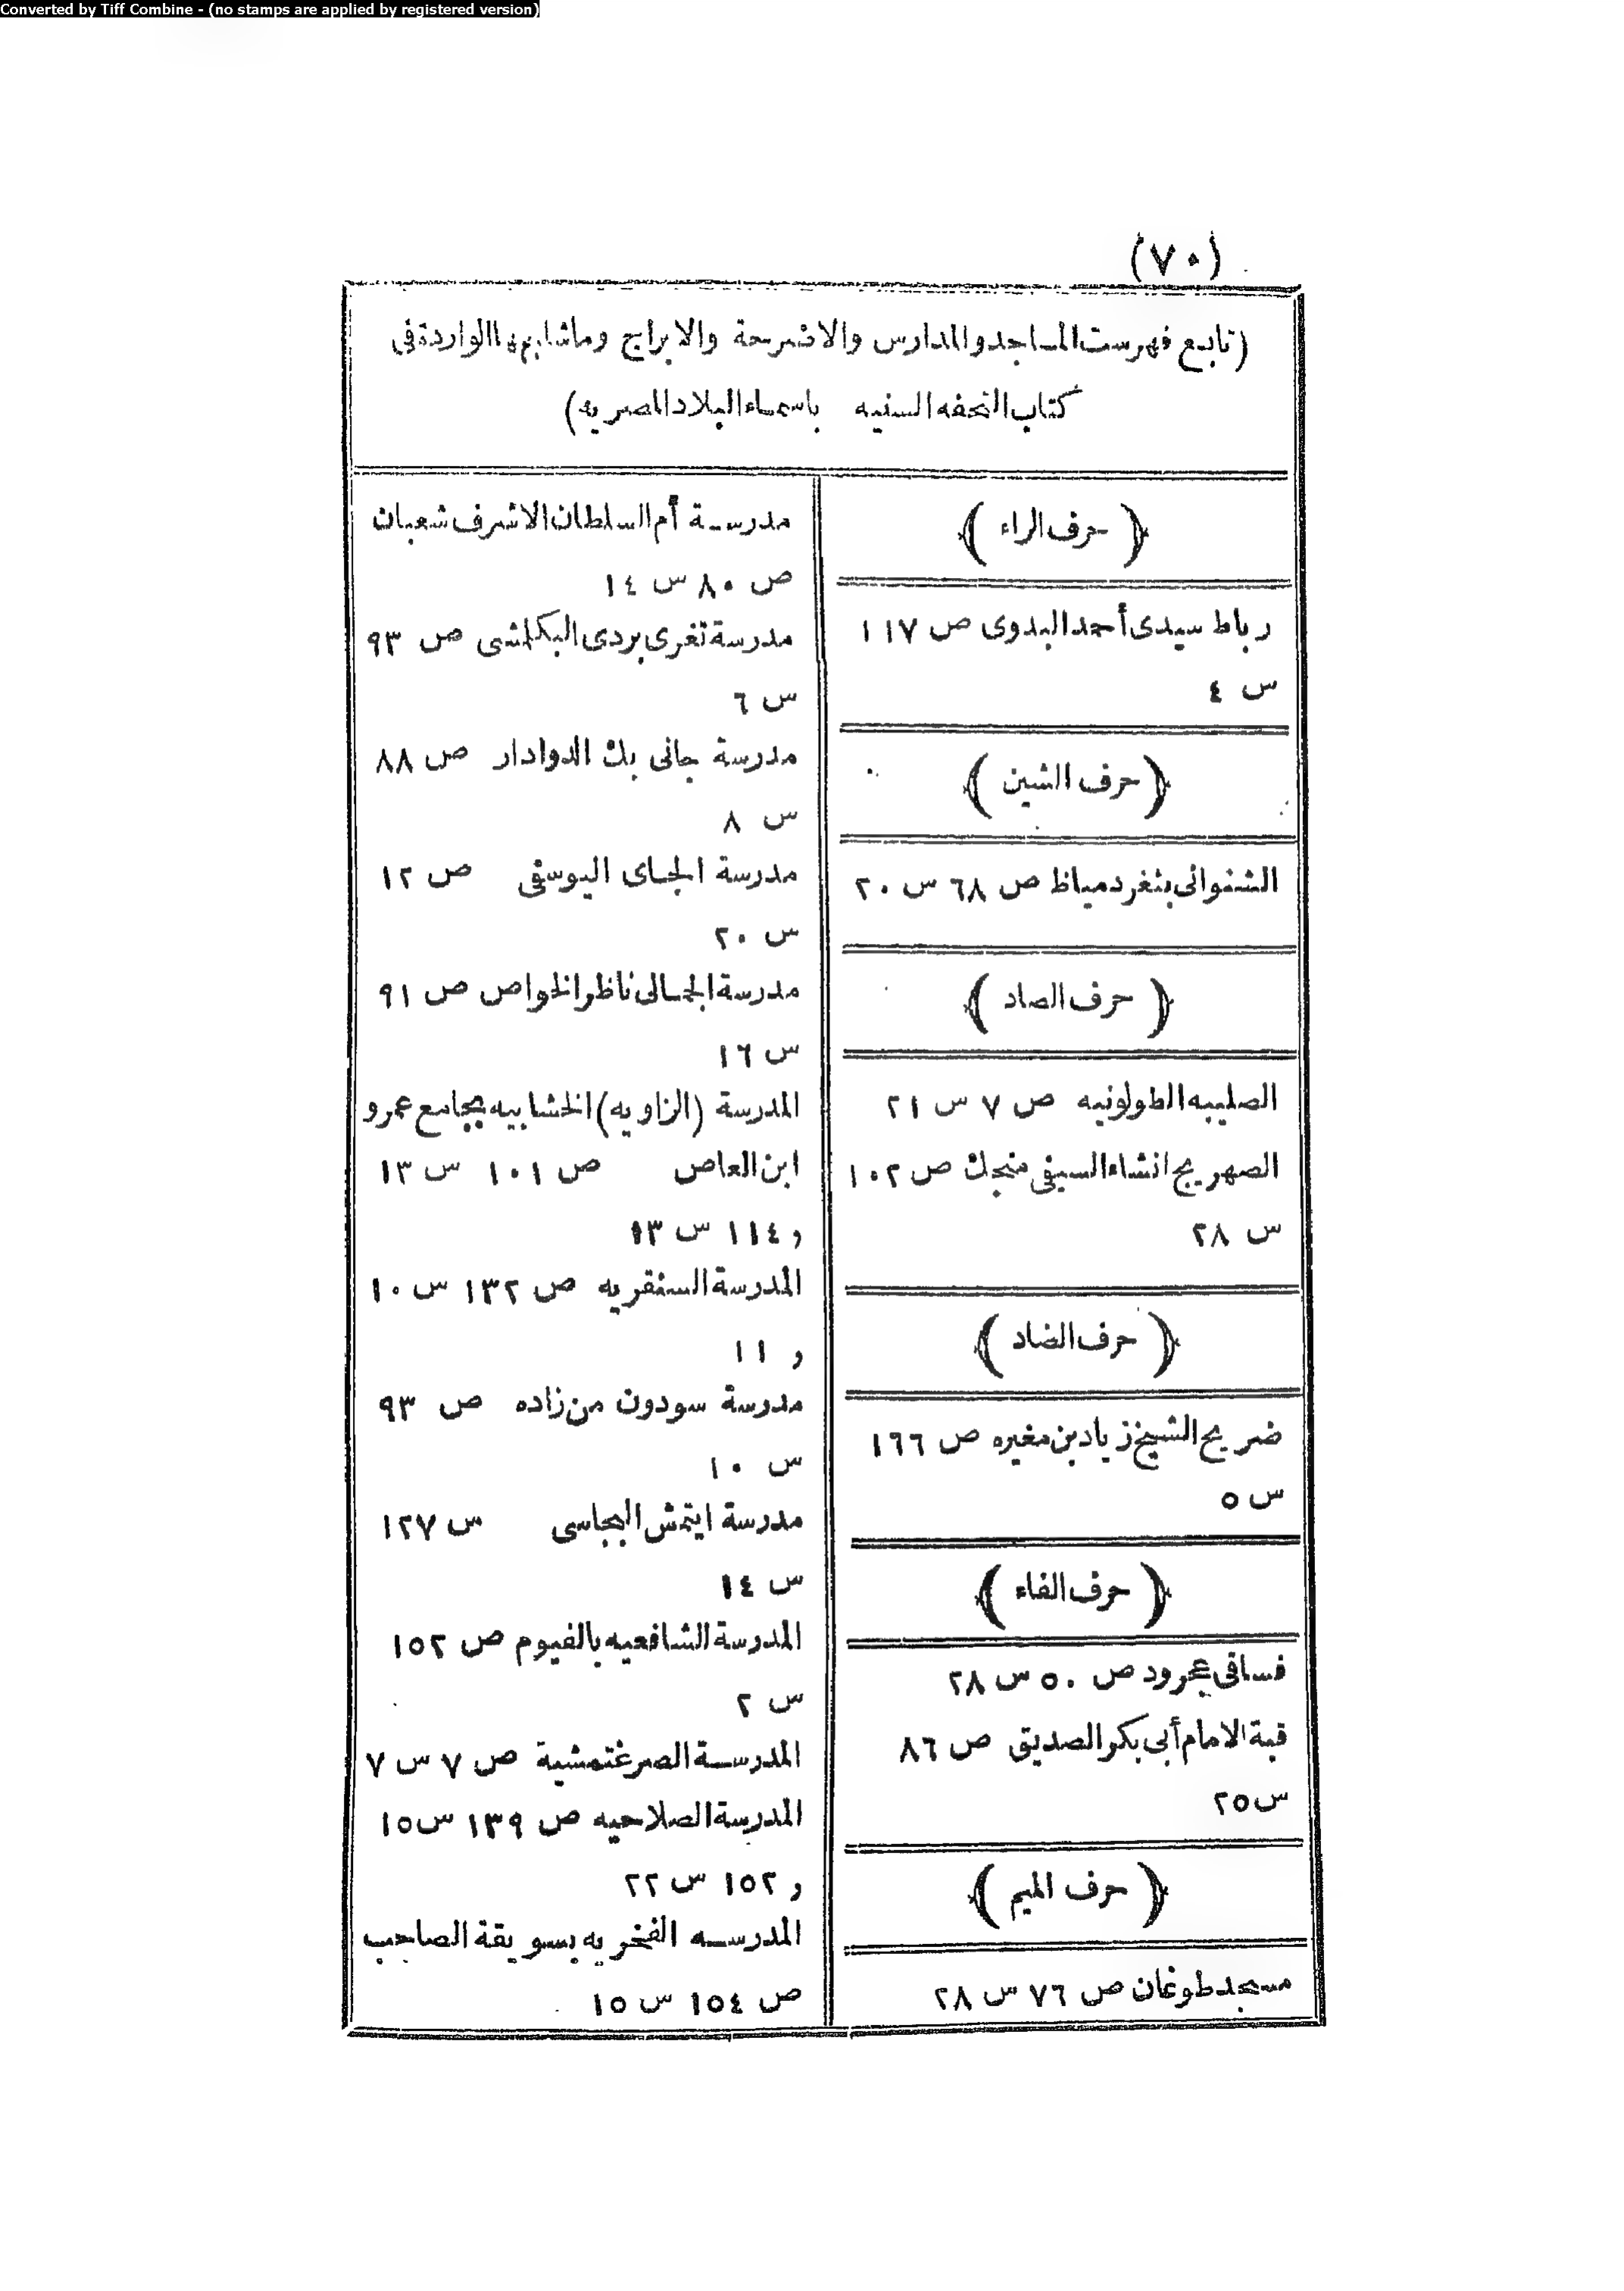 Converted by Tiff Combine - (no stamps are applied by registered version)
(٧٠)
(تابع فهرست المساجد والمدارس والاضرحة والابراج وماشابهها الواردة فى
كتاب التحفه السنيه باسماء البلاد المصريه)
﴿ حرف الراء ﴾
رباط سيدى أحمد البدوى ص ١١٧
س ٤
﴿ حرف الشين ﴾
الشنوانى بثغر دمياظ ص ٦٨ س ٢٠
﴿ حرف الصاد ﴾
الصليبه الطولونيه ص ٧ س ٢١
الصهريج انشاء السيفى منجك ص ١٠٢
س ٢٨
﴿ حرف الضاد ﴾
ضريح الشيخ زياد بن مغيره ص ١٦٦
س ٥
﴿ حرف الفاء ﴾
فساقى عجرود ص ٥٠ س ٢٨
قبة الامام أبى بكر الصديق ص ٨٦
س ٢٥
﴿ حرف الميم ﴾
مسجد طوغان ص ٧٦ س ٢٨
مدرسة أم السلطان الاشرف شعبان
ص ٨٠ س ١٤
مدرسة تغرى بردى البكلمشى ص ٩٣
س ٦
مدرسة جانى بك الدوادار ص ٨٨
س ٨
مدرسة الجاى اليوسفى ص ١٢
س ٢٠
مدرسة الجمالى ناظر الخواص ص ٩١
س ١٦
المدرسة (الزاويه) الخشابيه بجامع عمرو
ابن العاص ص ١٠١ س ١٣
و ١١٤ س ١٣
المدرسة السنقريه ص ١٣٢ س ١٠
و ١١
مدرسة سودون من زاده ص ٩٣
س ١٠
مدرسة ايتمش البجاسى س ١٢٧
س ١٤
المدرسة الشافعيه بالفيوم ص ١٥٢
س ٢
المدرسة الصرغتمشية ص ٧ س ٧
المدرسة الصلاحيه ص ١٣٩ س ١٥
و ١٥٢ س ٢٢
المدرسه الفخريه بسويقة الصاحب
ص ١٥٤ س ١٥